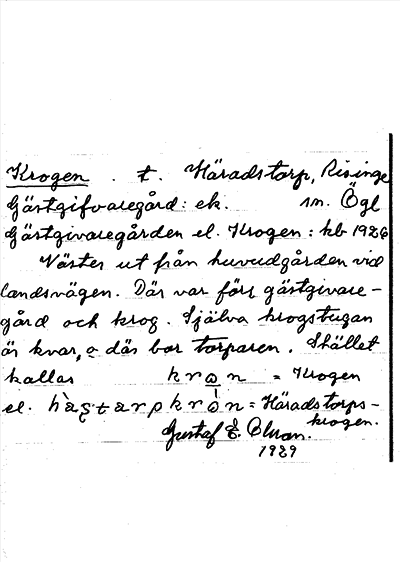 Krogen . t. Häradstorp, Risinge
Gästgifvaregård: ek. sn. Ögl
Gästgivaregården el. Krogen: kb 1926
Väster ut från huvudgården vid
landsvägen. Där var förr gästgivare-
gård och krog. Själva krogstugan
är kvar, o där bor torparen. Stället
kallas = Krogen
el. = Häradstorps-
krogen.
Gustaf E.
1929